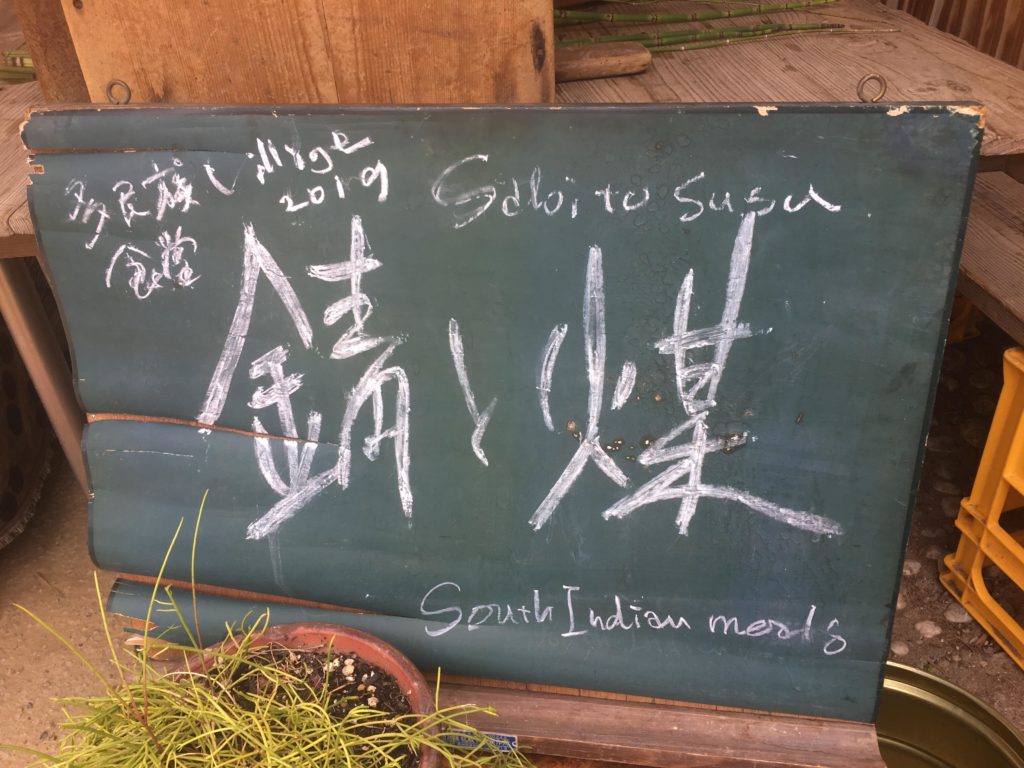 多民族 village
2019
食堂
Sabi to susu
錆と煤
South Indian meals